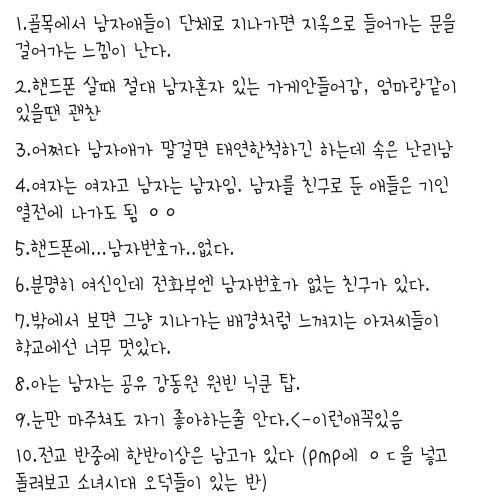 1.골목에서 남자애들이 단체로 지나가면 지옥으로 들어가는 문을
걸어가는 느낌이 난다.
2.핸드폰 살때 절대 남자혼자 있는 가게안들어감, 엄마랑같이
있을땐 괜찬
3.어쩌다 남자애가 말걸면 태연한척하긴 하는데 속은 난리남
4.여자는 여자고 남자는 남자임. 남자를 친구로 둔 애들은 기인
열전에 나가도 됨 ㅇㅇ
5.핸드폰에...남자번호가..없다.
6.분명히 여신인데 전화부엔 남자번호가 없는 친구가 있다.
7.밖에서 보면 그냥 지나가는 배경처럼 느껴지는 아저씨들이
학교에선 너무 멋있다.
8.아는 남자는 공유 강동원 원빈 닉쿤 탑.
9.눈만 마주쳐도 자기 좋아하는줄 안다.<-이런애꼭있음
10.전교 반중에 한반이상은 남고가 있다 (pmp에 ㅇㄷ을 넣고
돌려보고 소녀시대 오덕들이 있는 반)